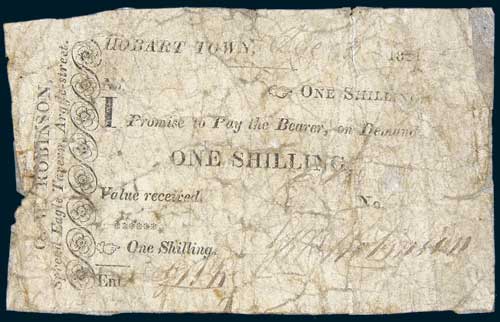 G. W. ROBINSON,
Spread Eagle Tavern, Argyle-street.
HOBART TOWN, Dec 182
No.
☞ ONE SHILLING
I Promise to Pay the Bearer, on Demand
ONE SHILLING,
Value received. No.
☞ One Shilling.
Ent.